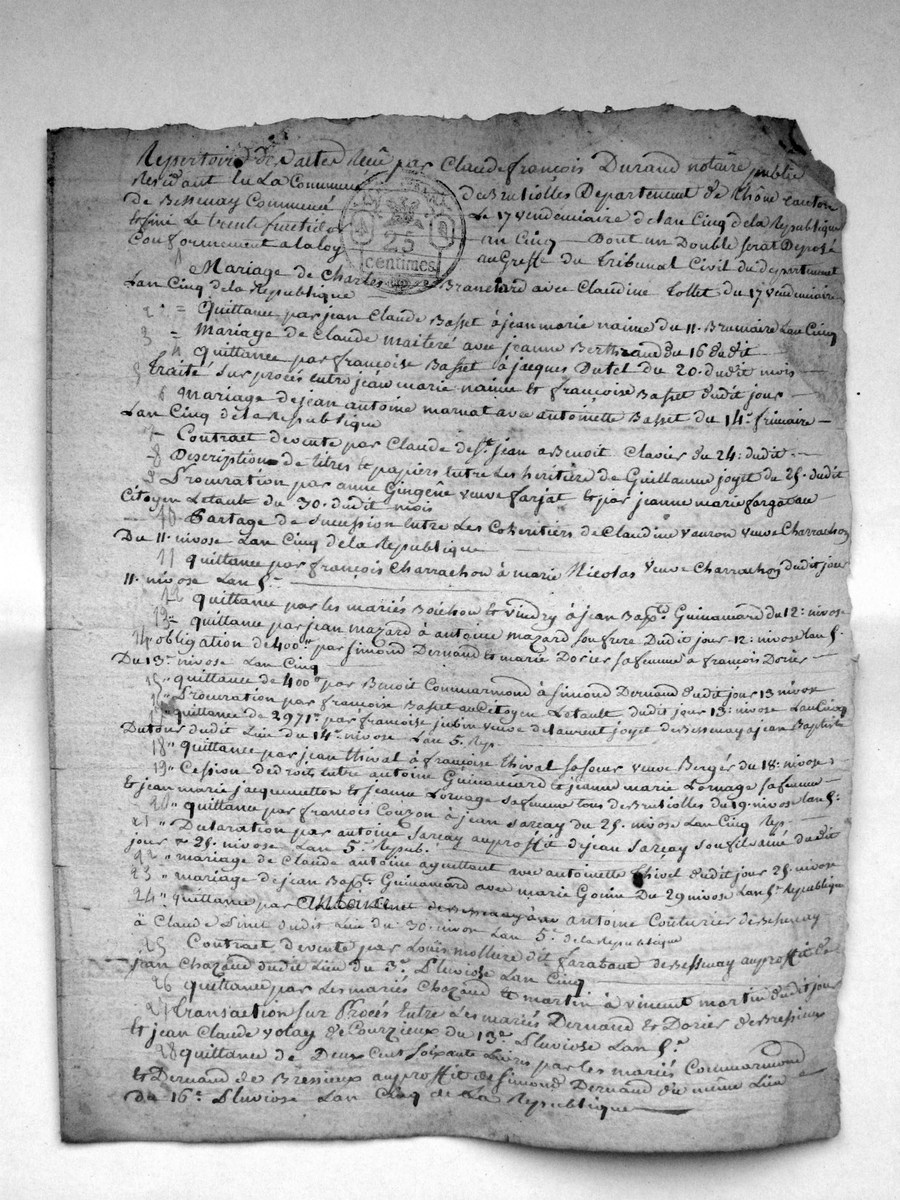 Repertoire des actes Reçu par Claude françois Durand notaire public
Residant En La Commune de Brullolles Departement de Rhône canton
de Bessenay Commencé Le 17 vendemiaire de Lan Cinq de la Republique
et fini Le trente fructidor an Cinq — Dont un Double serat Deposé
Conformement a la loy au Greffe du Tribunal Civil du departement
25
centimes
1 Mariage de Charles Blanchard avec Claudine Tollet du 17 vendemiaire
Lan Cinq de la Republique
2 = Quittance par jean Claude Basset à jean marie naime du 11. Brumaire Lan Cinq
3 = Mariage de Claude maiteré avec jeanne Berthaud du 16 dudit
4 Quittance par françoise Basset à jacques Dutel du 20. dudit mois —
5 traité sur procés entre jean marie naime et françoise Basset dudit jour
6 Mariage de jean antoine marnat avec antoinette Basset du 14e. frimaire —
Lan Cinq de la Republique
7 — Contract de vente par Claude de st. jean a Benoit Clavier du 24: dudit —
8 Description de titres et papiers entre Les heritiers de Guillaume joyet du 25. dudit
9 Procuration par anne Gingene veuve farjat et par jeanne marie fargatau
Citoyen Letault du 30. dudit mois
— 10 Partage de sucession entre Les Coheritiers de Claudine vauron veuve Charrachon
Du 11. nivose Lan Cinq de la Republique
11 quittance par françois Charrachon à marie Nicolas veuve Charrachon dudit jour
11. nivose Lan 5.
12 quittance par les mariés Bouchon et vindry à jean Bapte. Guinamard du 12: nivose
13 = quittance par jean mazard à antoine mazard son frere Dudit jour 12: nivose Lan 5.
14 obligation de 400tt par Simond Dernand et marie Dorier sa femme a françois Dorier —
Du 13e. nivose Lan Cinq
15 " quittance de 400tt par Benoit Commarmond à Simond Dernand dudit jour 13 nivose
16 " Procuration par françoise Basset au Citoyen Letault dudit jour 13: nivose Lan Cinq
17 quittance de 2971tt par françoise jubin veuve de Laurent joyet de Bessenay à jean Baptiste
Dutour dudit Lieu du 14e. nivose Lan 5. Rep.
18 " quittance par jean thival à françoise thival sa soeur veuve Berger du 18: nivose
19 " Cession de droits entre antoine Guinamard et jeanne marie Lornage sa femme
Et jean marie jacquemetton et jeanne Lornage sa femme tous de Brullolles du 19. nivose Lan 5.
20 " quittance par françois Couzon à jean sarcay du 25. nivose Lan Cinq Rep.
21 " Declaration par antoine sarcay au proffit de jean sarcay son fils ainé du dit
jour 25. nivose Lan 5e Repub.
22 " mariage de Claude antoine aguettant avec antoinette thivel dudit jour 25. nivose
23 " mariage de jean Bapte. Guinamard avec marie Gonin Du 29 nivose Lan 5e. Republique
24 " quittance par antoine de Bessenay à antoine Couturier de Bessenay
à Claude Pinet dudit Lieu du 30. nivose Lan 5e. de la Republique
25 Contract de vente par Louis mollière dit farabant de Bessenay au proffit de
jean Chazaud dudit Lieu du 3e. Pluviose Lan Cinq
26 quittance par Les mariés Chazaud et martin à vincent martin dudit jour
27 transaction sur Procés Entre Les mariés Dernand et Dorier de Bressieux
Et jean Claude volay de Courzieux du 13e Pluviose Lan 5e.
28 quittance de Deux Cent soixante Livres par les mariés Commarmond
Et Dernand de Bressieux au proffit de Simond Dernand du même Lieu
Du 16e. Pluviose Lan Cinq de La Republique